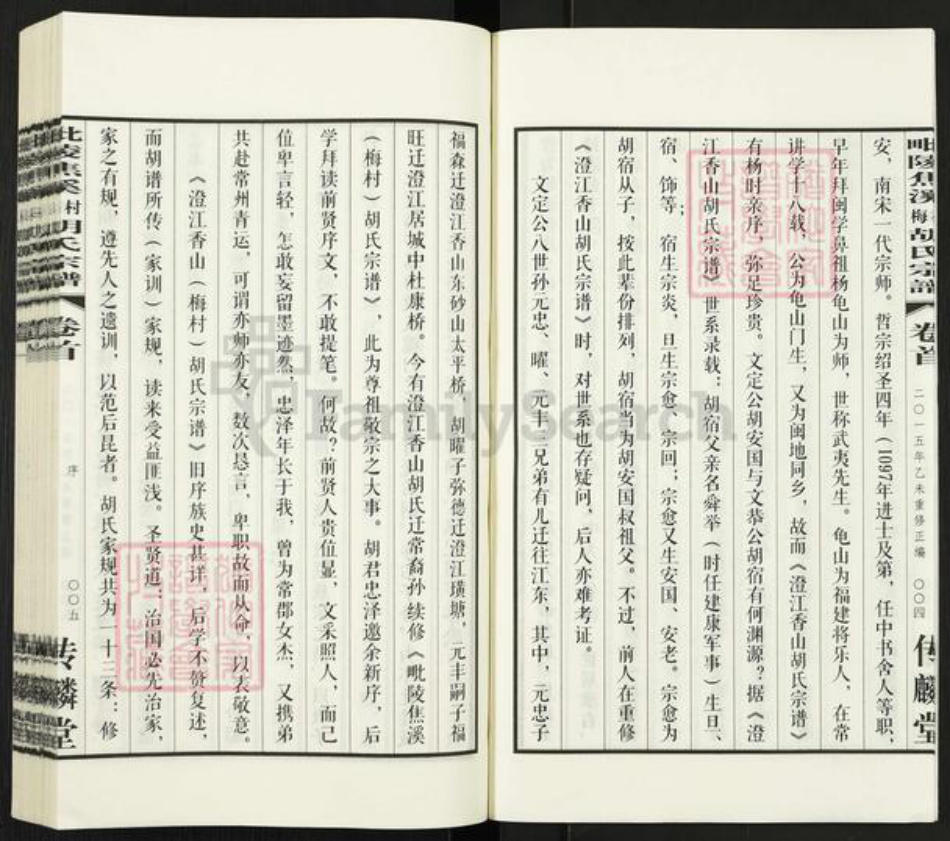 毗陵焦溪梅村胡氏宗谱
卷首
二〇一五年乙未重修正编
〇〇四
传麟堂
安，南宋一代宗师。哲宗绍圣四年（1097年进士及第，任中书舍人等职，
早年拜闽学鼻祖杨龟山为师，世称武夷先生。龟山为福建将乐人，在常
讲学十八载，公为龟山门生，又为闽地同乡，故而《澄江香山胡氏宗谱》
有杨时亲序，弥足珍贵。文定公胡安国与文恭公胡宿有何渊源？据《澄
江香山胡氏宗谱》世系录载：胡宿父亲名舜举（时任建康军事）生旦、
宿、饰等；宿生宗炎，旦生宗愈、宗回；宗愈又生安国、安老。宗愈为
胡宿从子，按此辈份排列，胡宿当为胡安国叔祖父。不过，前人在重修
《澄江香山胡氏宗谱》时，对世系也存疑问，后人亦难考证。
文定公八世孙元忠、曜、元丰三兄弟有儿迁往江东，其中，元忠子
福森迁澄江香山东砂山太平桥，胡曜子弥德迁澄江璜塘，元丰嗣子福
旺迁澄江居城中杜康桥。今有澄江香山胡氏迁常裔孙续修《毗陵焦溪
（梅村）胡氏宗谱》，此为尊祖敬宗之大事。胡君忠泽邀余新序，后
学拜读前贤序文，不敢提笔。何故？前贤人贵位显，文采照人，而己
位卑言轻，怎敢妄留墨迹然，忠泽年长于我，曾为常郡女杰，又携弟
共赴常州青运，可谓亦师亦友，数次恳言，卑职故而从命，以表敬意。
《澄江香山（梅村）胡氏宗谱》旧序族史甚详，后学不赘复述，
而胡谱所传（家训）家规，读来受益匪浅。圣贤道：治国必先治家，
家之有规，遵先人之遗训，以范后昆者。胡氏家规共为一十三条：修
毗陵焦溪梅村胡氏宗谱
卷首
序
〇〇五
传麟堂
FamilySearch